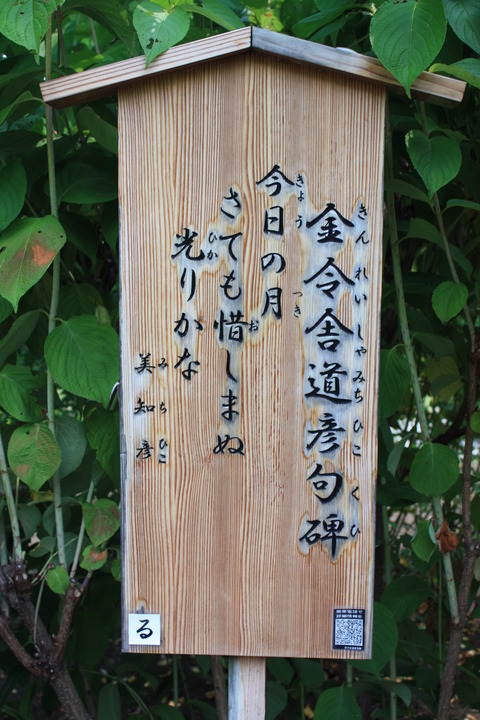 金令舎道彦句碑
きんれいしゃみちひこくひ
今日の月
きょう つき
さても惜しまぬ
お
光りかな
ひか
美知彦
みちひこ
る